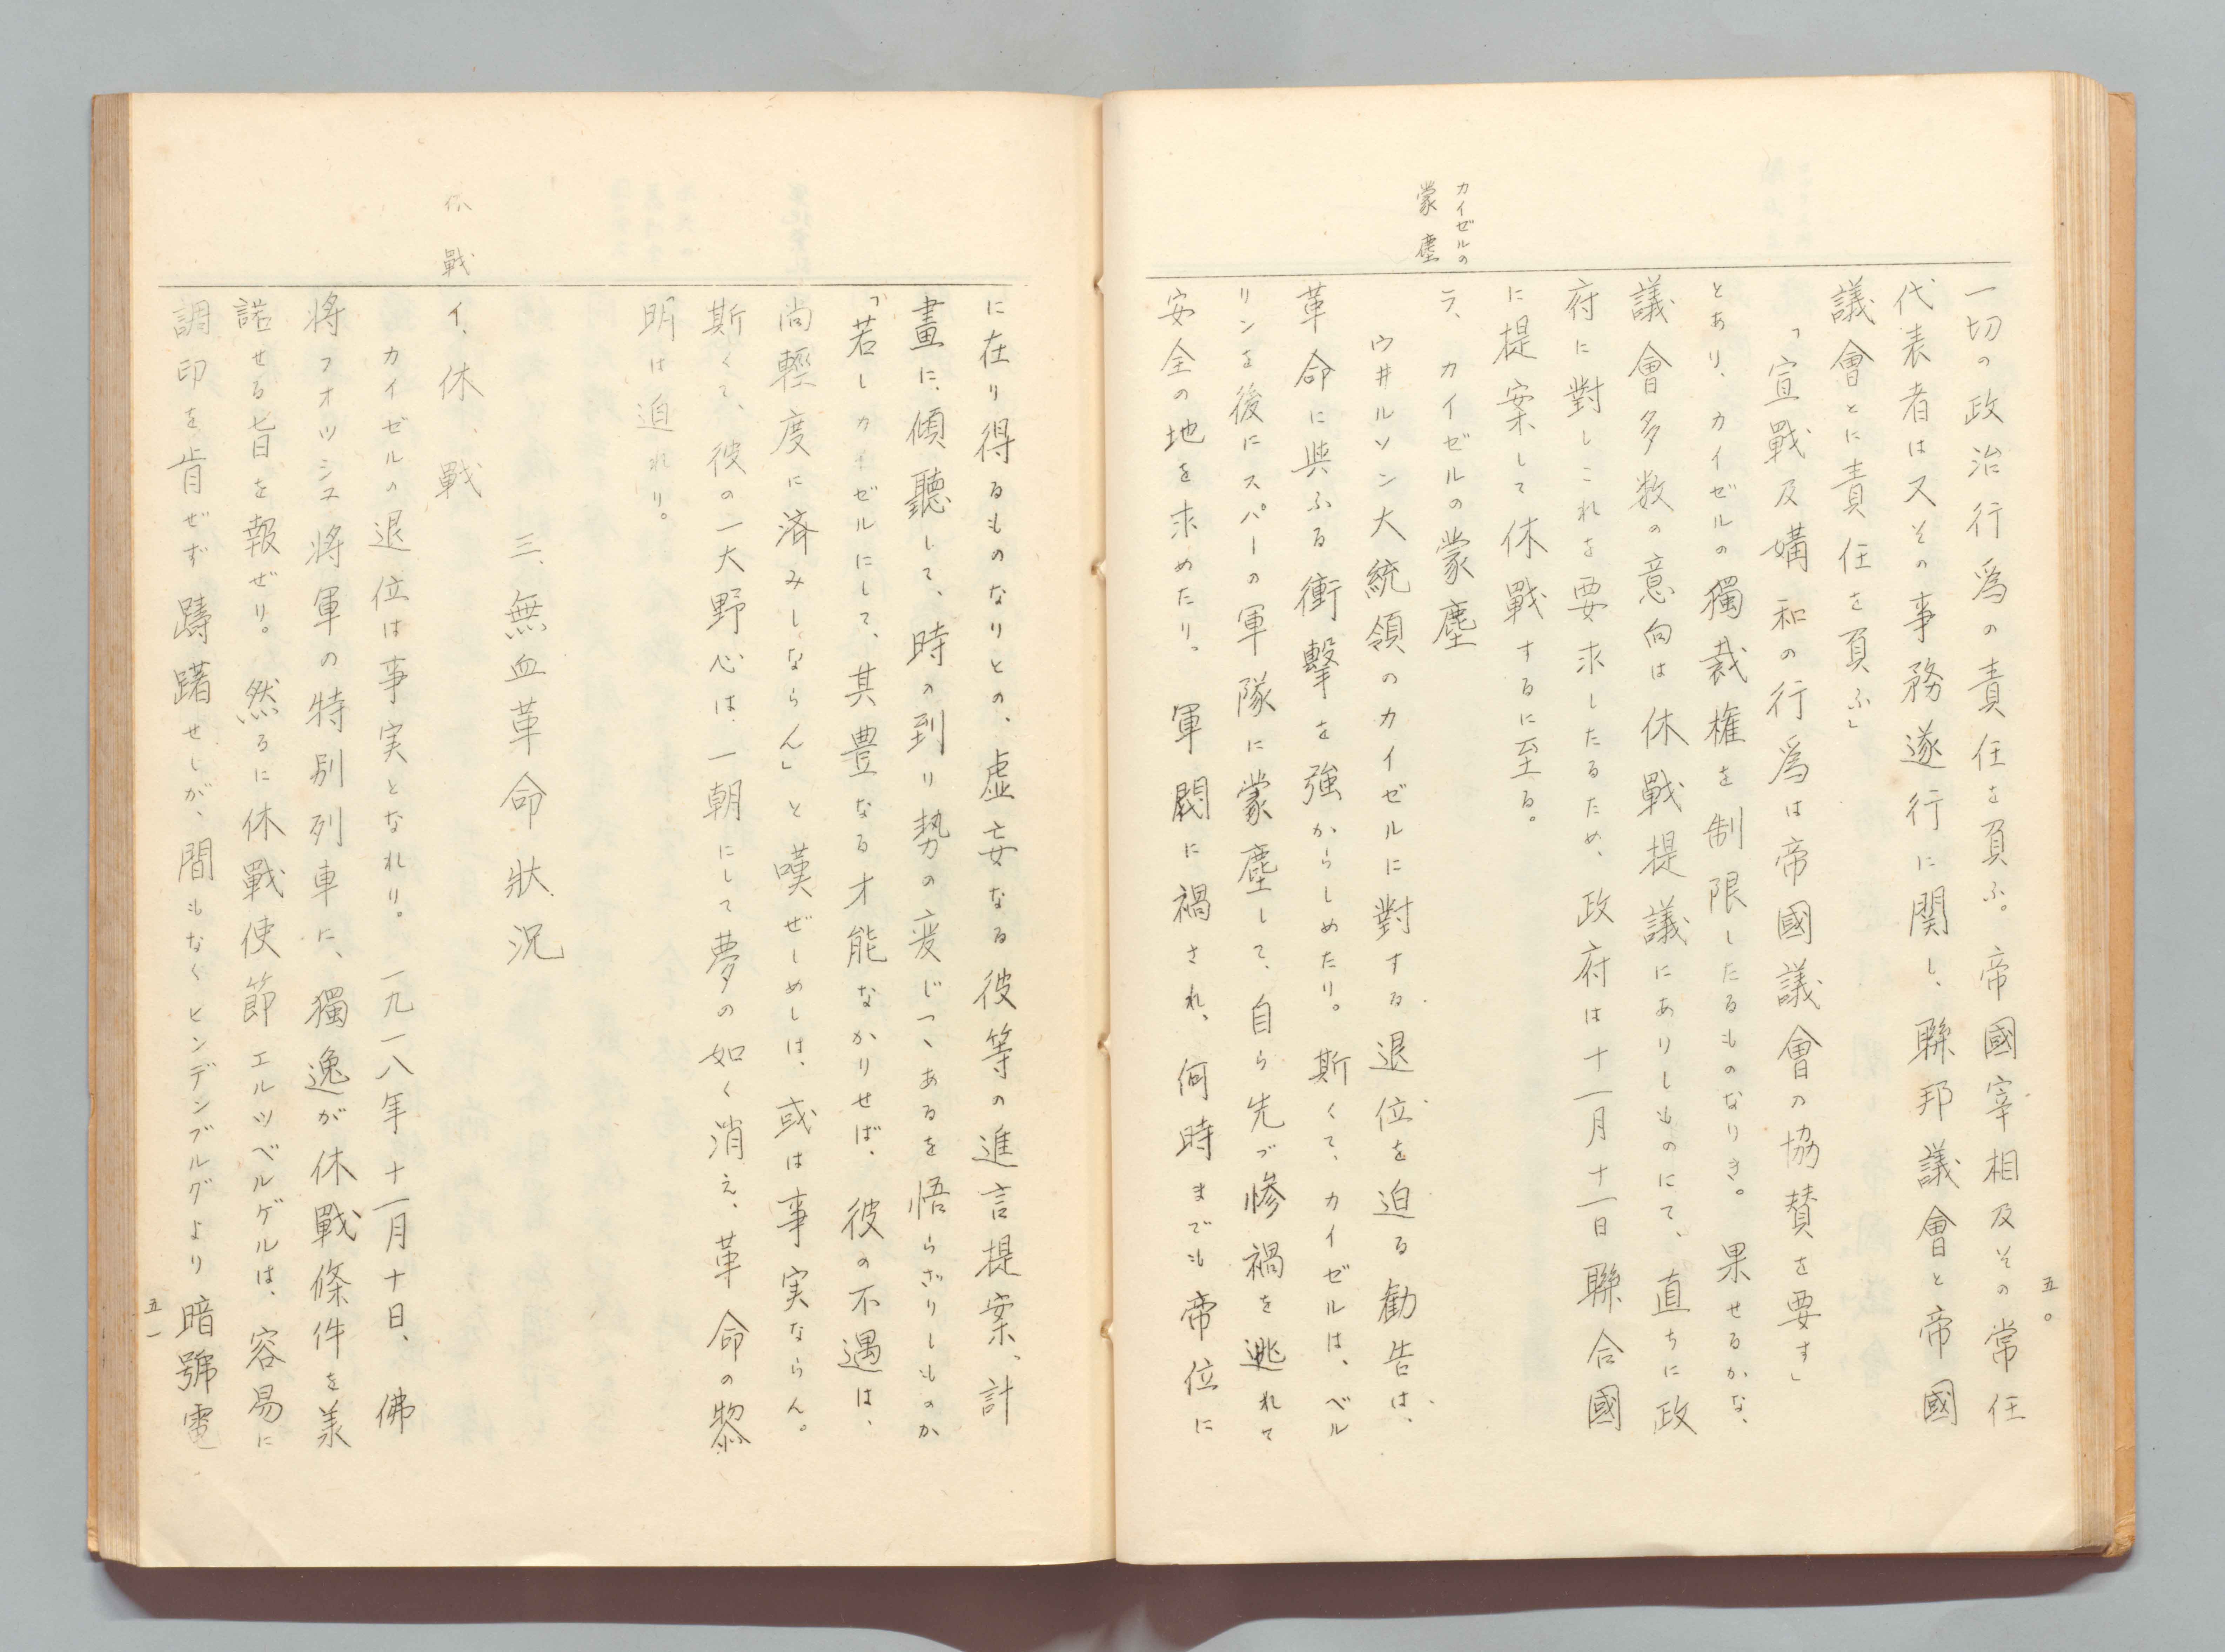 五〇
一切の政治行爲の責任を負ふ。帝國宰相及その常任
代表者は又その事務遂行に関し、聯邦議會と帝國
議會とに責任を負ふ」
「宣戰及媾和の行爲は帝國議會の協賛を要す」
とあり、カイゼルの獨裁権を制限したるものなりき。果せるかな、
議會多数の意向は休戰提議にありしものにて、直ちに政
府に對しこれを要求したるため、政府は十一月十一日聯合國
に提案して休戰するに至る。
カイゼルの
蒙塵
ラ、カイゼルの蒙塵
ウ井ルソン大統領のカイゼルに對する退位を迫る勧告は、
革命に與ふる衝撃を強からしめたり。斯くて、カイゼルは、ベル
リンを後にスパーの軍隊に蒙塵して、自ら先づ惨禍を逃れて
安全の地を求めたり。軍閥に禍され、何時までも帝位に
に在り得るものなりとの、虚妄なる彼等の進言提案、計
畫に、傾聽して、時の到り勢の変じつゝあるを悟らざりしものか
「若しカイゼルにして、其豊なる才能なかりせば、彼の不遇は、
尚輕度に済みしならん」と嘆ぜしめしは、或は事実ならん。
斯くて、彼の一大野心は、一朝にして夢の如く消え、革命の黎
明は迫れり。
三、無血革命狀況
休戰
イ、休戰
カイゼルの退位は事実となれり。一九一八年十一月十日、佛
将フオツシュ将軍の特別列車に、獨逸が休戰條件を羕
諾せる旨を報ぜり。然るに休戰使節エルツベルゲルは、容易に
調印を肯ぜず躊躇せしが、間もなくヒンデンブルグより暗號電
五一